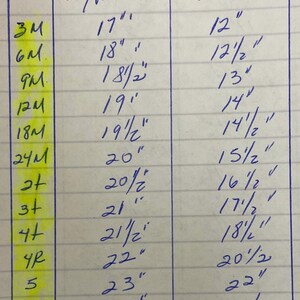 3M 17" 12"
6M 18" 12½"
9M 18½" 13"
12M 19" 14"
18M 19½" 14½"
24M 20" 15½"
2t 20½" 16½"
3t 21" 17½"
4t 21½" 18½"
4R 22" 20½
5 23" 22"